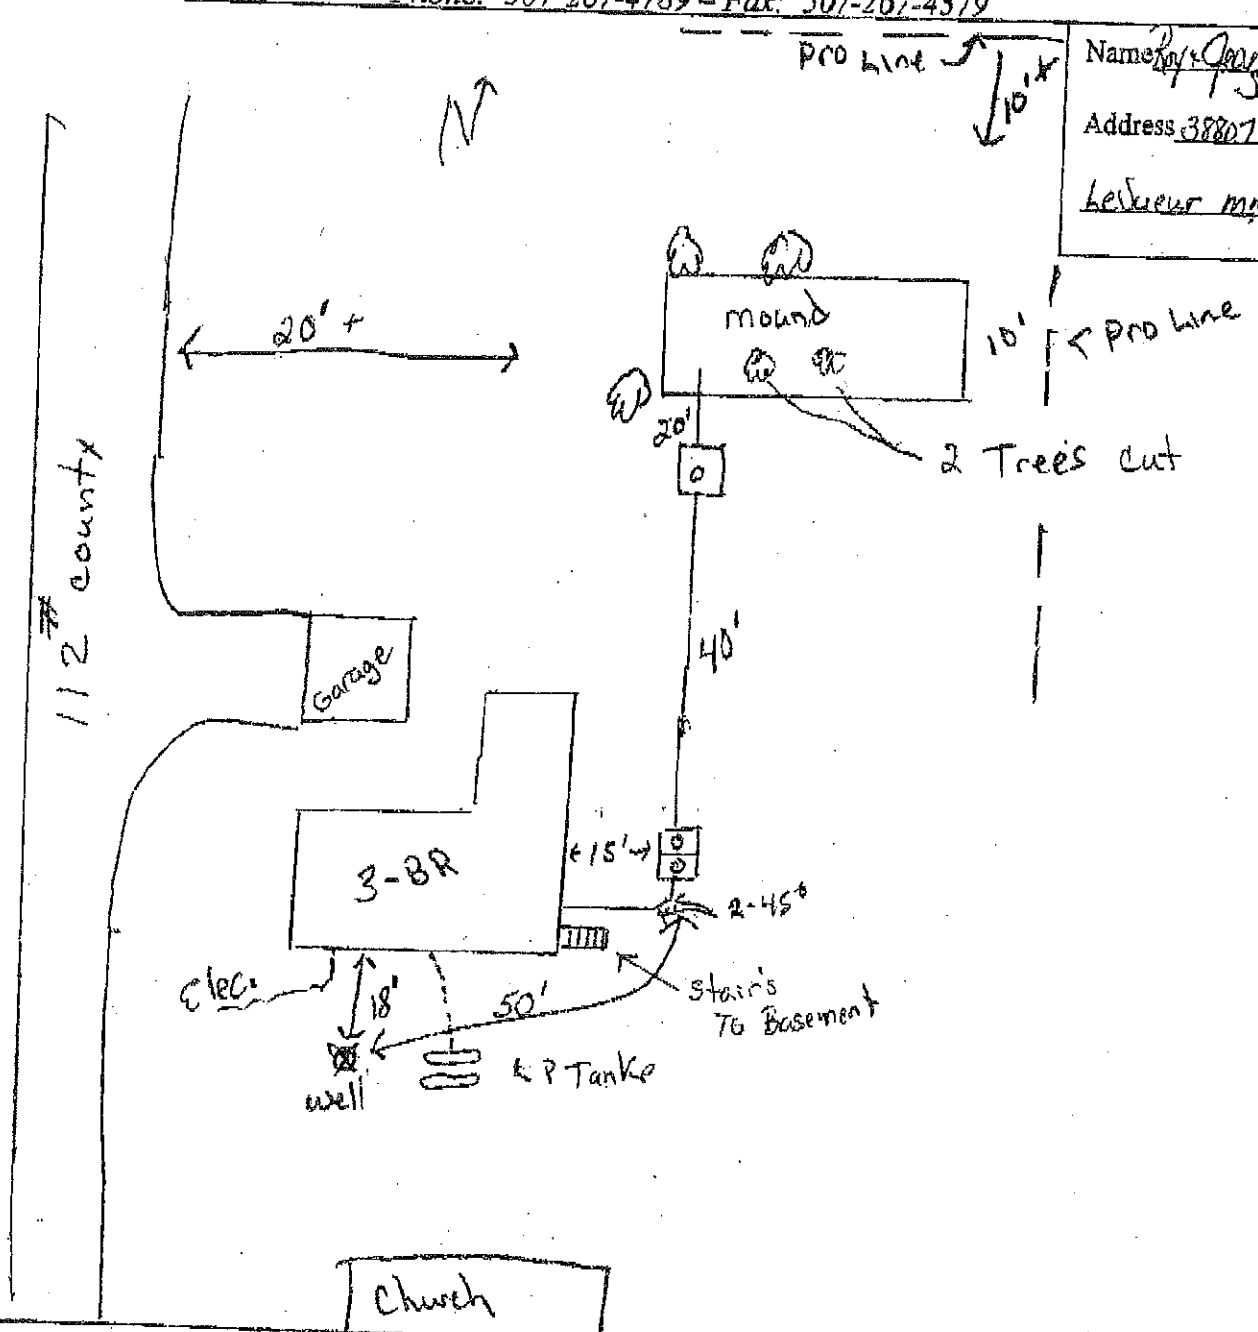 Phone: 507-267-4789 – Fax: 507-267-4379
pro Line
10' +
Name Roy &
Address 38807
LeSueur mn
N
20' +
mound
10'
pro Line
20'
2 Tree's cut
112 # county
Garage
40'
3-BR
15'
2-45°
Elec.
18'
50'
Stair's
To Basement
well
LP Tanks
Church